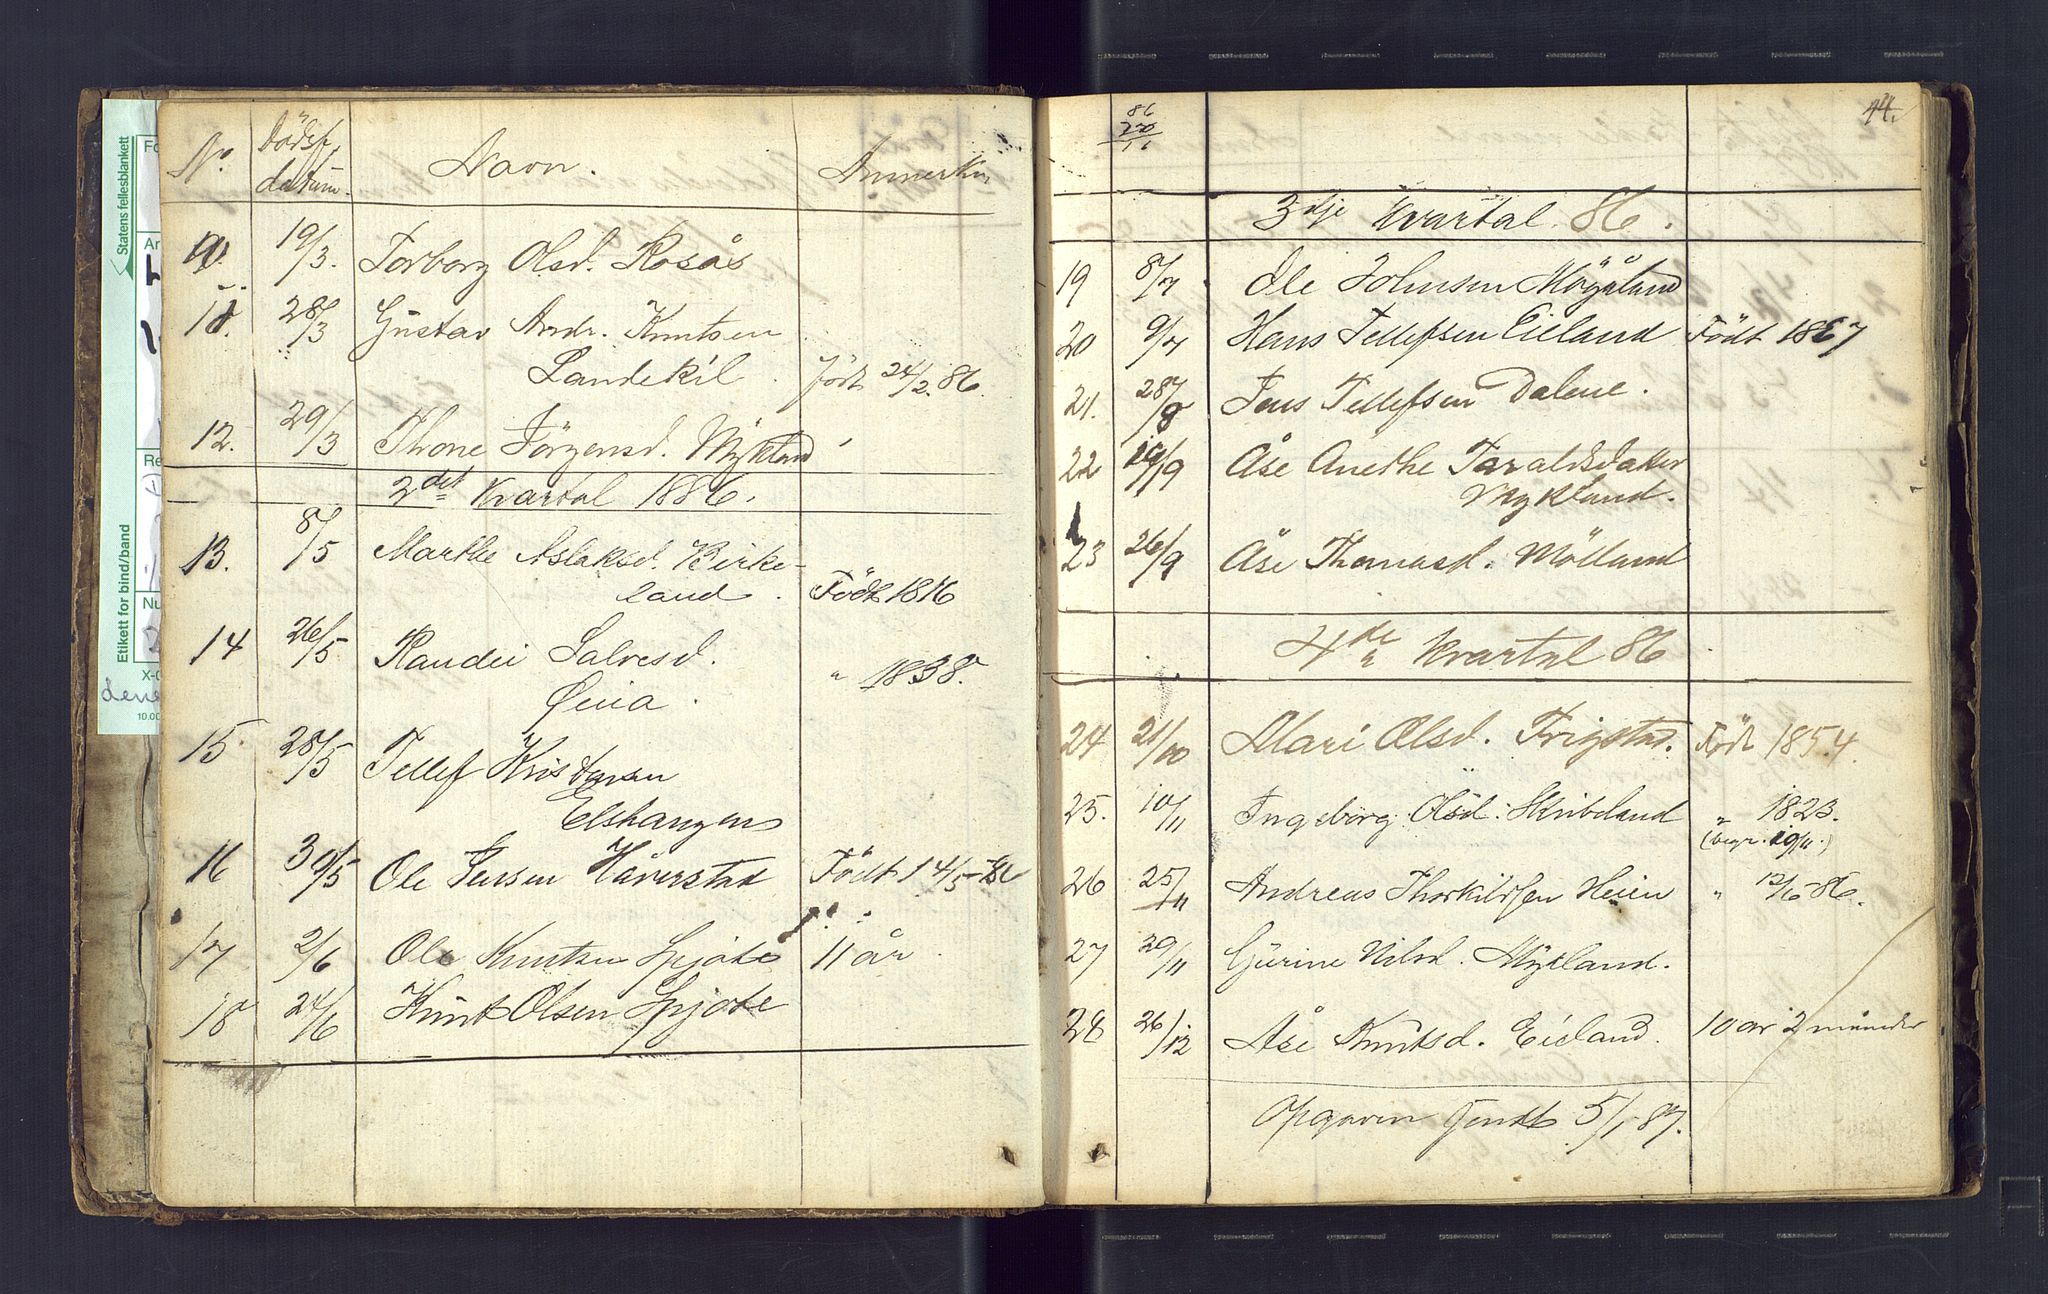 No. Dödsf. datum. Navn. Anmerkn.
19/3. Torborg Olsd. Rosås
28/3 Gustav Andr. Knutsen
Landekil. Födt 24/2.86.
12. 29/3 Throne Jörgensd. Mykland
2det Kvartal 1886.
13. 8/5 Marthe Aslaksd. Birke-
land. Födt 1816
14 26/5 Randei Salvesd.
Øina. " 1838.
15 28/5 Tellef Kristensen
Elshaugen
16 30/5 Ole Jensen Håverstad Födt 14/5-86
17 2/6 Ole Knutsen Spjote 11 år.
18 24/6 Knut Olsen Spjote
Statens fellesblankett
Etikett for bind/band
44.
86
3dje Kvartal 86.
19 8/7 Ole Johnsen Möyåland
20 9/7 Hans Tellefsen Eieland Födt 1867
21. 28/8 Jens Tellefsen Dalene.
22 19/9 Åse Anethe Taraldsdatter
Mykland.
23 26/9 Åse Thomasd. Mölland
4de Kvartal 86
24 21/10 Mari Olsd. Trigstad. Födt 1854.
25. 10/11 Ingeborg Olsd. Skribeland " 1823.
(begr. 19/11.)
26 25/11 Andreas Thorkildsen Heien " 12/6-86.
27 29/11 Gurine Nilsd. Mykland.
28 26/12 Åse Knutsd. Eieland. 10 år 2 måneder
Opgaven sendt 5/1-87.